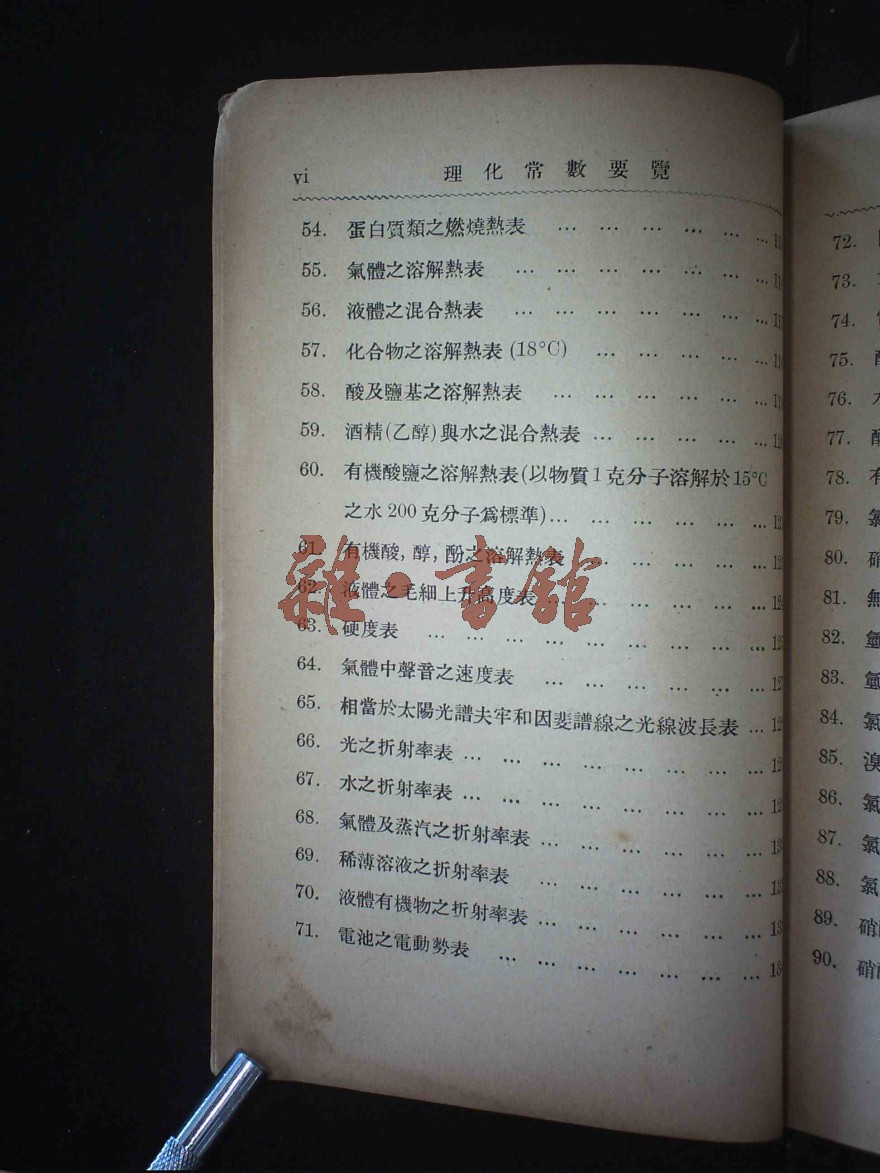 vi 理化常數要覽
54. 蛋白質類之燃燒熱表 … … … … … …
55. 氣體之溶解熱表 … … … … … … …
56. 液體之混合熱表 … … … … … … …
57. 化合物之溶解熱表 (18°C) … … … … …
58. 酸及鹽基之溶解熱表 … … … … … …
59. 酒精(乙醇)與水之混合熱表 … … … … …
60. 有機酸鹽之溶解熱表(以物質1克分子溶解於15°C
之水200克分子爲標準)… … … … … …
61. 有機酸, 醇, 酚之溶解熱表 … … … … …
62. 液體之毛細上升高度表 … … … … … …
63. 硬度表 … … … … … … … … …
64. 氣體中聲音之速度表 … … … … … …
65. 相當於太陽光譜夫牢和因斐譜線之光線波長表 …
66. 光之折射率表 … … … … … … … …
67. 水之折射率表 … … … … … … … …
68. 氣體及蒸汽之折射率表 … … … … … …
69. 稀薄溶液之折射率表 … … … … … …
70. 液體有機物之折射率表 … … … … … …
71. 電池之電動勢表 … … … … … … …
雜·書館
72.
73.
74.
75.
76.
77.
78. 有
79. 氯
80. 硝
81. 無
82.
83.
84. 氯
85. 溴
86. 氯
87. 氯
88. 氯
89. 硝
90. 硝